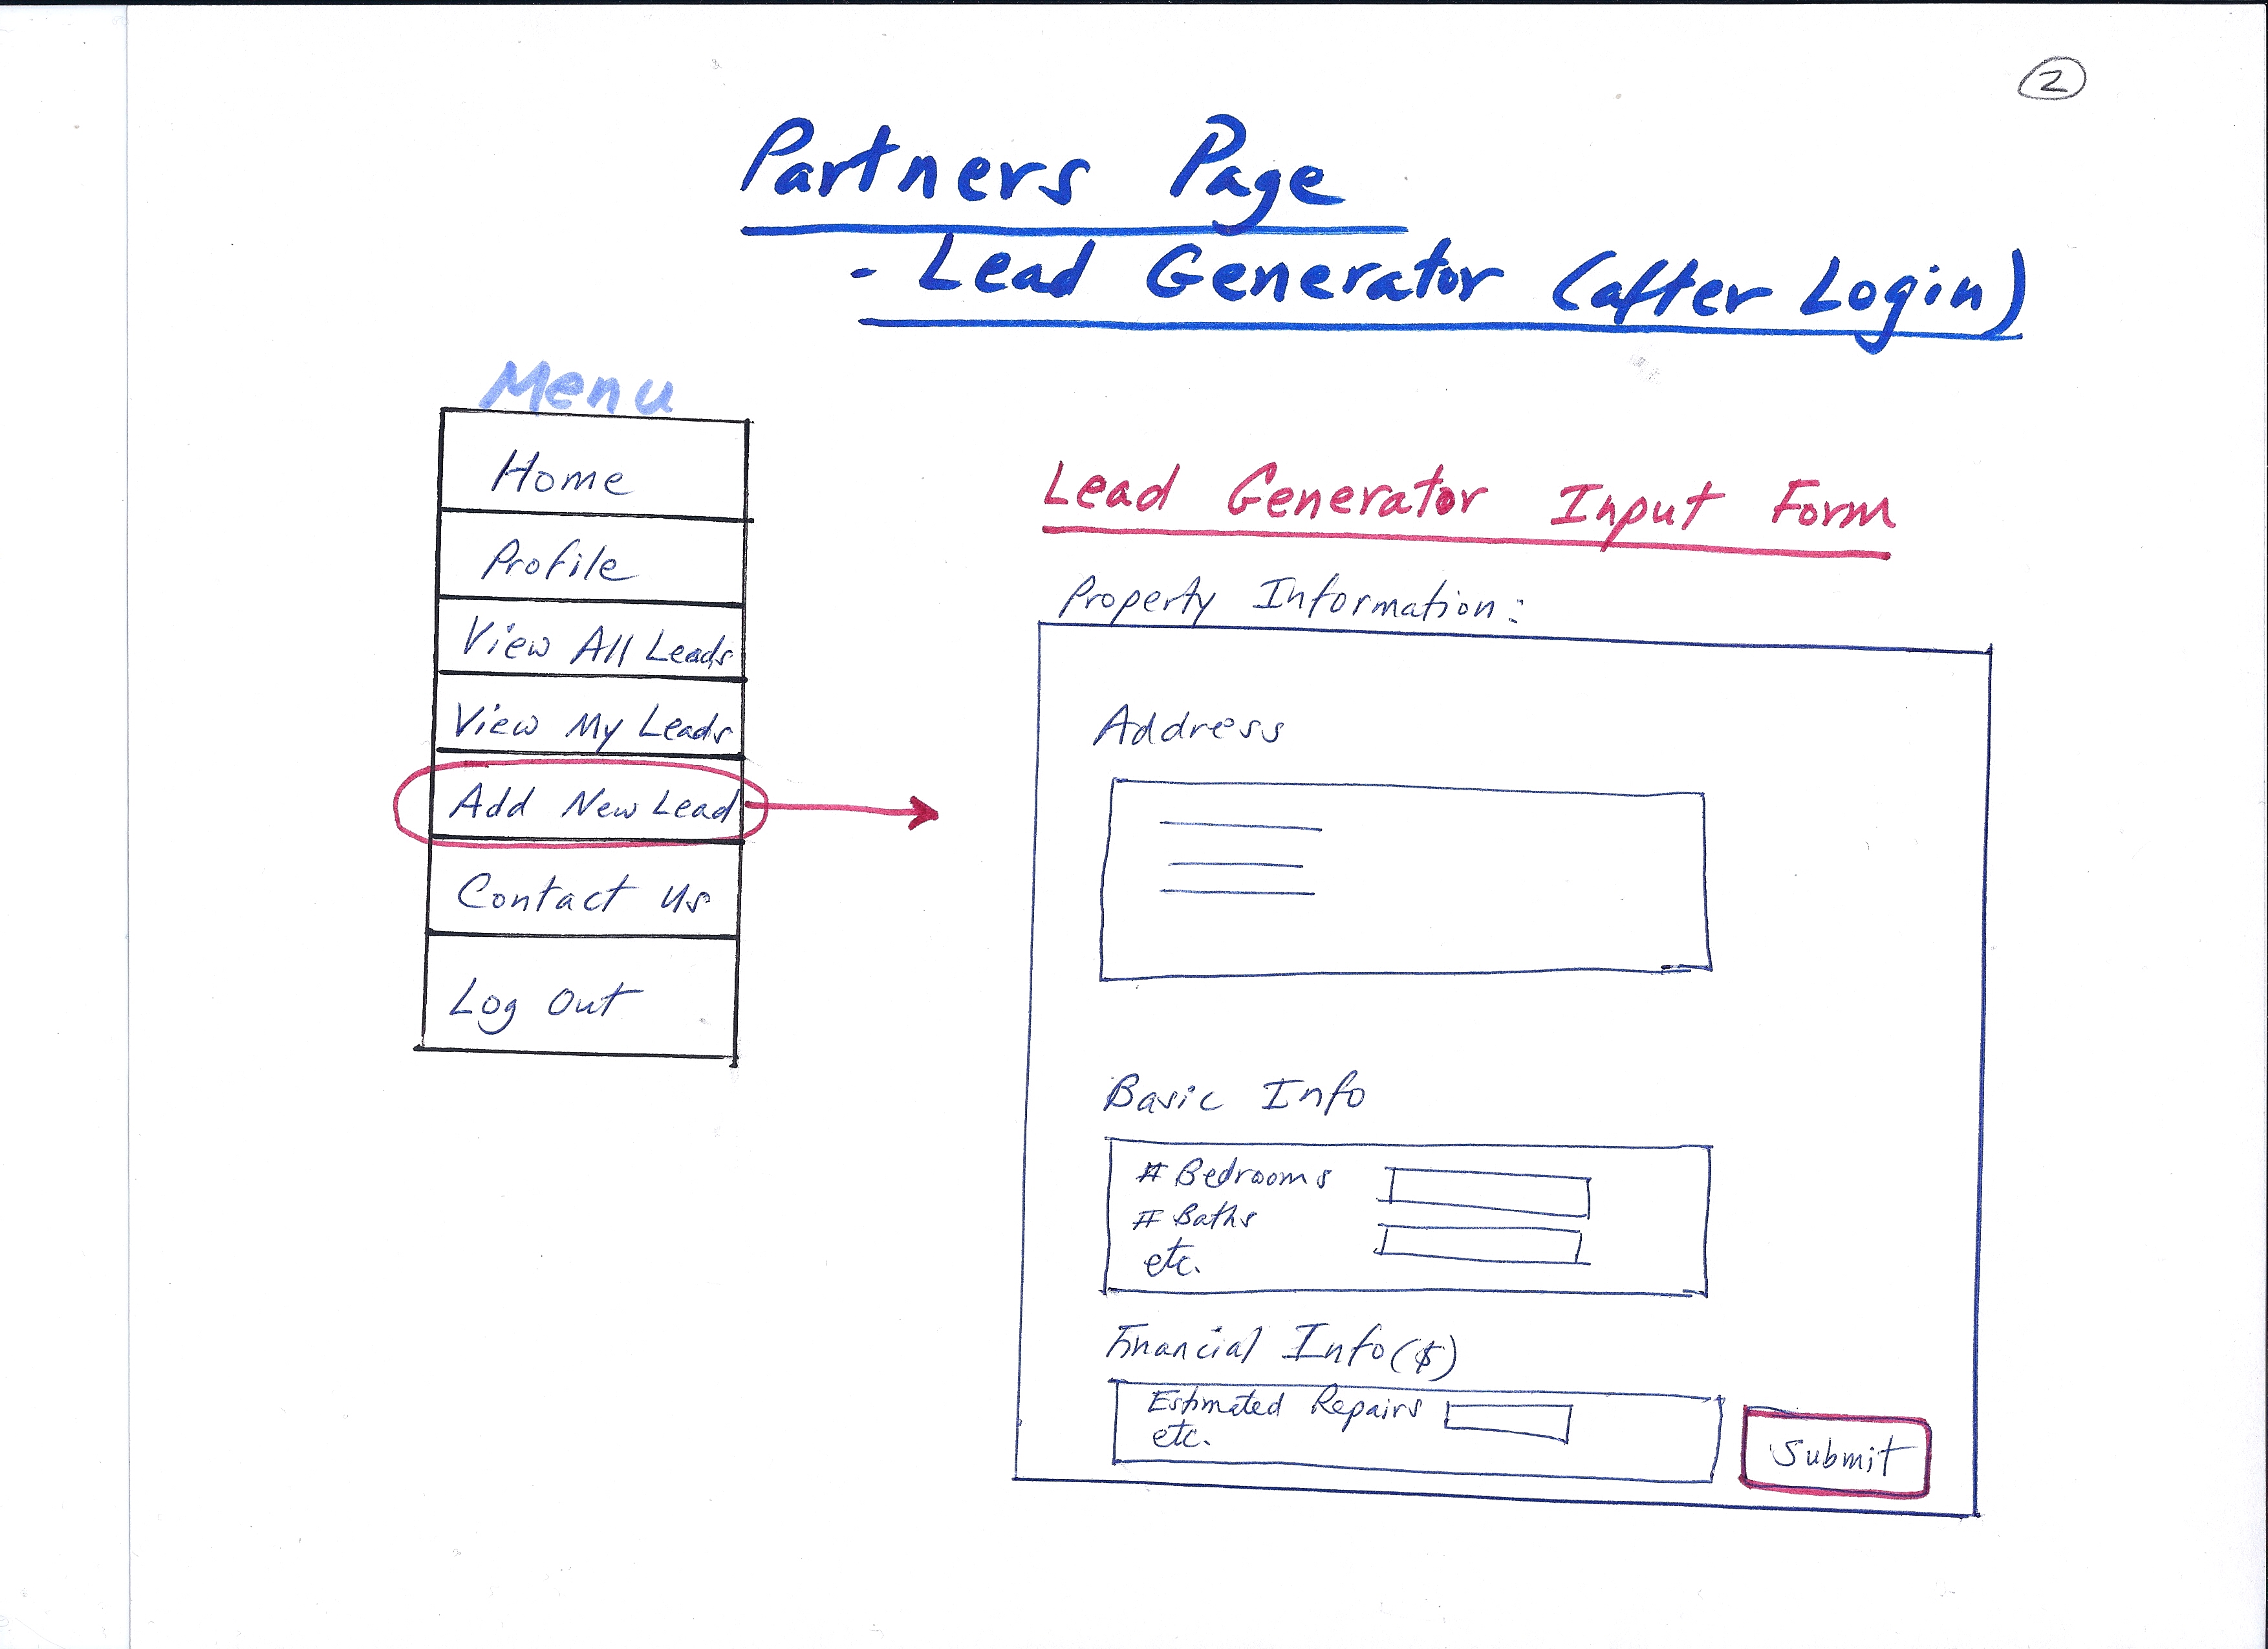 2
Partners Page
- Lead Generator (after Login)
Menu
Home
Profile
View All Leads
View My Leads
Add New Lead
Contact Us
Log Out
Lead Generator Input Form
Property Information:
Address
Basic Info
# Bedrooms
# Baths
etc.
Financial Info ($)
Estimated Repairs
etc.
Submit